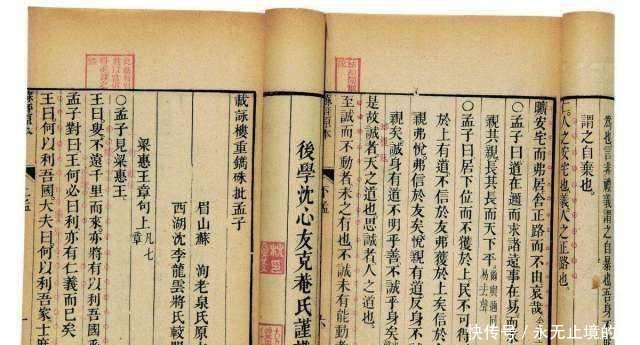 為也言非禮義謂之自暴也吾身
謂之自棄也。
仁人之安宅也義人之正路也。
曠安宅而弗居舍正路而不由哀哉
○孟子曰道在邇而求諸遠事在易而
親其親長其長而天下平 爾與邇同 易去聲
○孟子曰居下位而不獲於上民不可得
於上有道不信於友弗獲於上矣信於
親弗悅弗信於友矣悅親有道反身不
親矣誠身有道不明乎善不誠其身矣
是故誠者天之道也思誠者人之道也。
至誠而不動者未之有也不誠未有能動者
下孟
後學沈心友克菴氏謹
載詠樓重鐫硃批孟子
眉山蘇 洵老泉氏原
西湖沈李龍雲將氏較
梁惠王章句上 凡七章
○孟子見梁惠王。
王曰叟不遠千里而來亦將有以利吾
孟子對曰王何必曰利亦有仁義而已矣
王曰何以利吾國大夫曰何以利吾家士庶
上孟
快传号/永无止境的